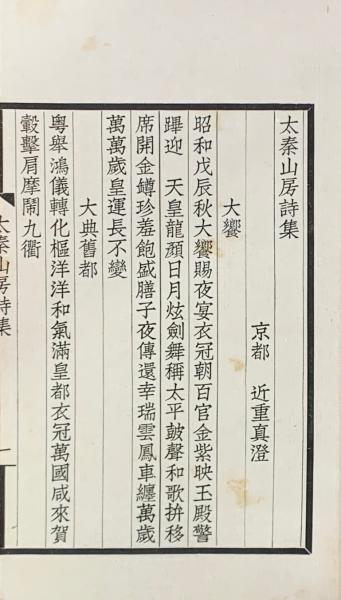 太秦山房詩集
京都 近重真澄
大饗
昭和戊辰秋大饗賜夜宴衣冠朝百官金紫映玉殿警
蹕迎 天皇龍顏日月炫劍舞稱太平皷聲和歌拚移
席開金罇珍羞飽盛膳子夜傳還幸瑞雲鳳車纏萬歲
萬萬歲皇運長不變
大典舊都
粤舉鴻儀轉化樞洋洋和氣滿皇都衣冠萬國咸來賀
轂擊肩摩鬧九衢
太秦山房詩集
一